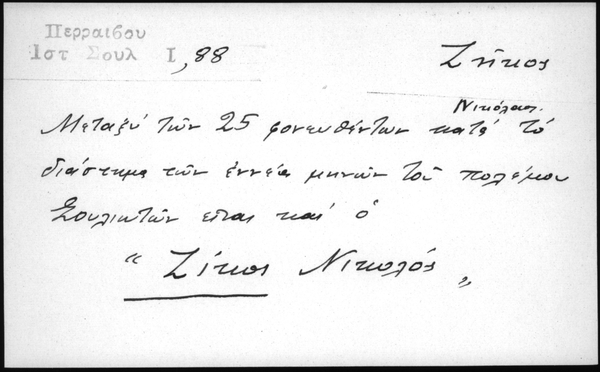 Περραιβου
Ιστ Σουλ Ι, 88
Ζήκος
Νικόλαος.
Μεταξύ τῶν 25 φονευθέντων κατά τό
διάστημα τῶν ἐννέα μηνῶν τοῦ πολέμου
Σουλιωτῶν εἶναι καί ὁ
“ Ζίκος Νικολός „